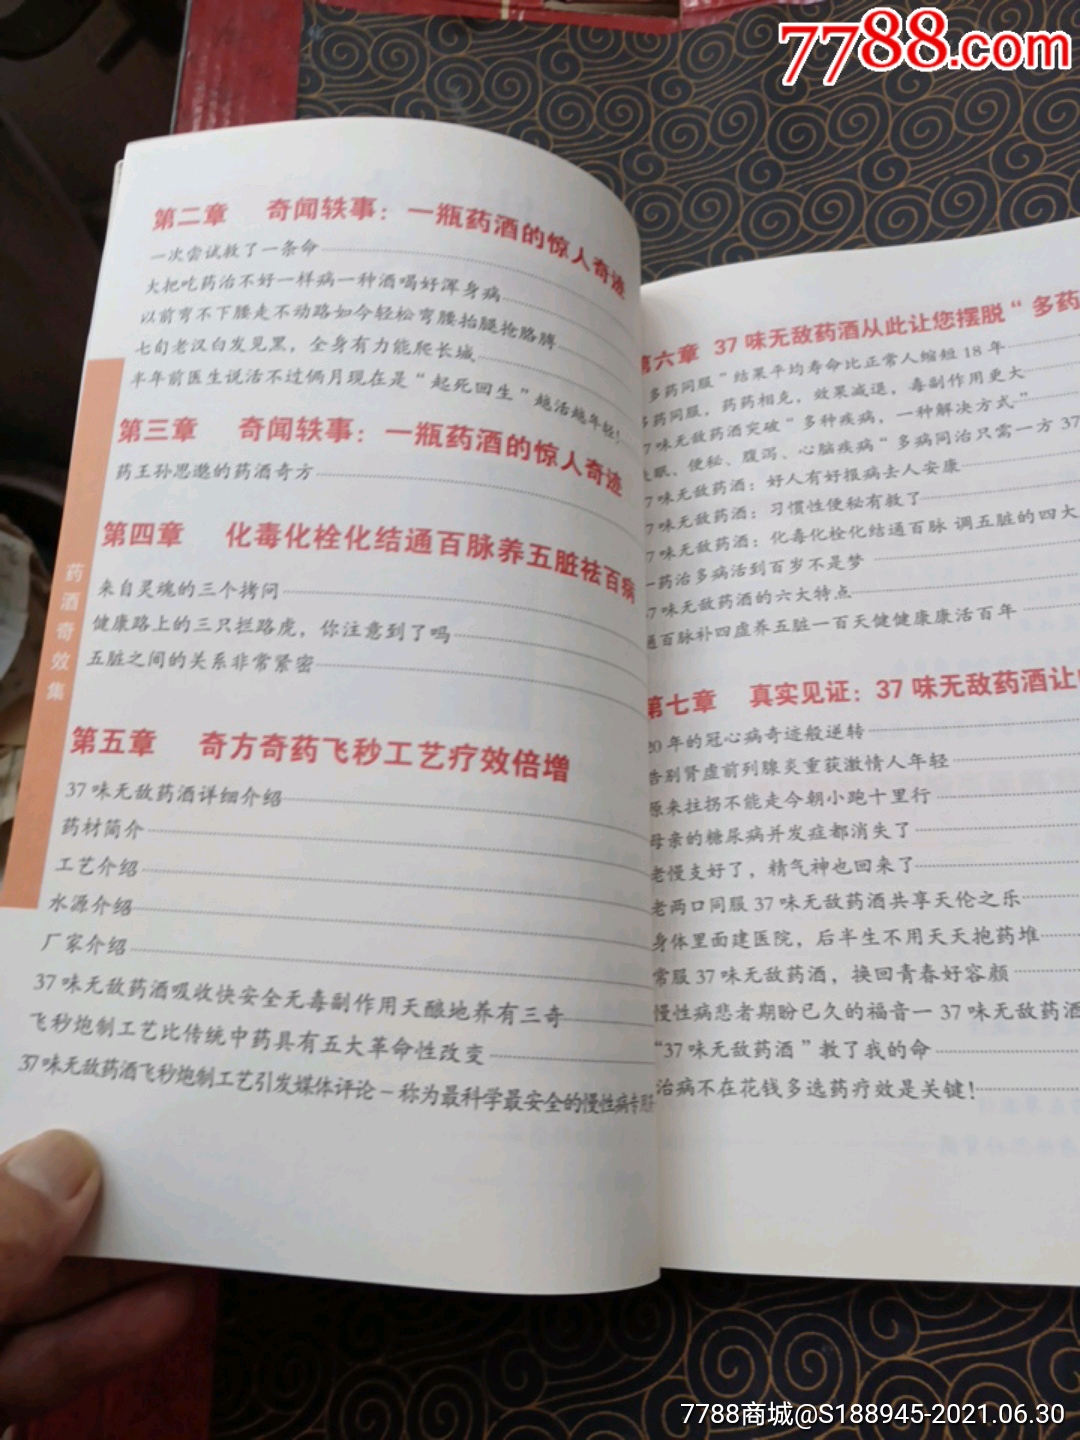 7788.com
第二章 奇闻轶事：一瓶药酒的惊人奇迹
一次尝试救了一条命
大把吃药治不好一样病一种酒喝好浑身病
以前弯不下腰走不动路如今轻松弯腰抬腿抢胳膊
七旬老汉白发见黑，全身有力能爬长城
半年前医生说活不过俩月现在是“起死回生”越活越年轻！
第三章 奇闻轶事：一瓶药酒的惊人奇迹
药王孙思邈的药酒奇方
第四章 化毒化栓化结通百脉养五脏祛百病
来自灵魂的三个拷问
健康路上的三只拦路虎，你注意到了吗
五脏之间的关系非常紧密
第五章 奇方奇药飞秒工艺疗效倍增
37味无敌药酒详细介绍
药材简介
工艺介绍
水源介绍
厂家介绍
37味无敌药酒吸收快安全无毒副作用天酿地养有三奇
飞秒炮制工艺比传统中药具有五大革命性改变
37味无敌药酒飞秒炮制工艺引发媒体评论－称为最科学最安全的慢性病专用
药酒奇效集
第六章 37味无敌药酒从此让您摆脱“多药
多药同服”结果平均寿命比正常人缩短18年
多药同服，药药相克，效果减退，毒副作用更大
37味无敌药酒突破“多种疾病，一种解决方式”
失眠、便秘、腹泻、心脑疾病“多病同治只需一方37
37味无敌药酒：好人有好报病去人安康
37味无敌药酒：习惯性便秘有救了
37味无敌药酒：化毒化栓化结通百脉 调五脏的四大
一药治多病活到百岁不是梦
37味无敌药酒的六大特点
通百脉补四虚养五脏一百天健健康康活百年
第七章 真实见证：37味无敌药酒让
20年的冠心病奇迹般逆转
告别肾虚前列腺炎重获激情人年轻
原来拄拐不能走今朝小跑十里行
母亲的糖尿病并发症都消失了
老慢支好了，精气神也回来了
老两口同服37味无敌药酒共享天伦之乐
身体里面建医院，后半生不用天天抱药堆
常服37味无敌药酒，换回青春好容颜
慢性病患者期盼已久的福音一37味无敌药酒
“37味无敌药酒”救了我的命
治病不在花钱多选药疗效是关键！
7788商城@S188945-2021.06.30